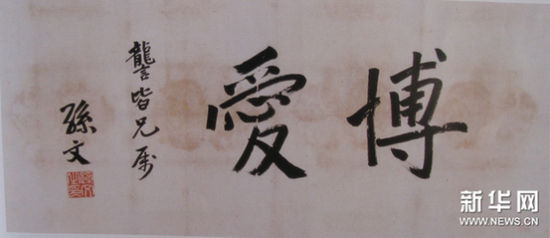 博愛
讋皆兄属
孫文
新华网
WWW.NEWS.CN